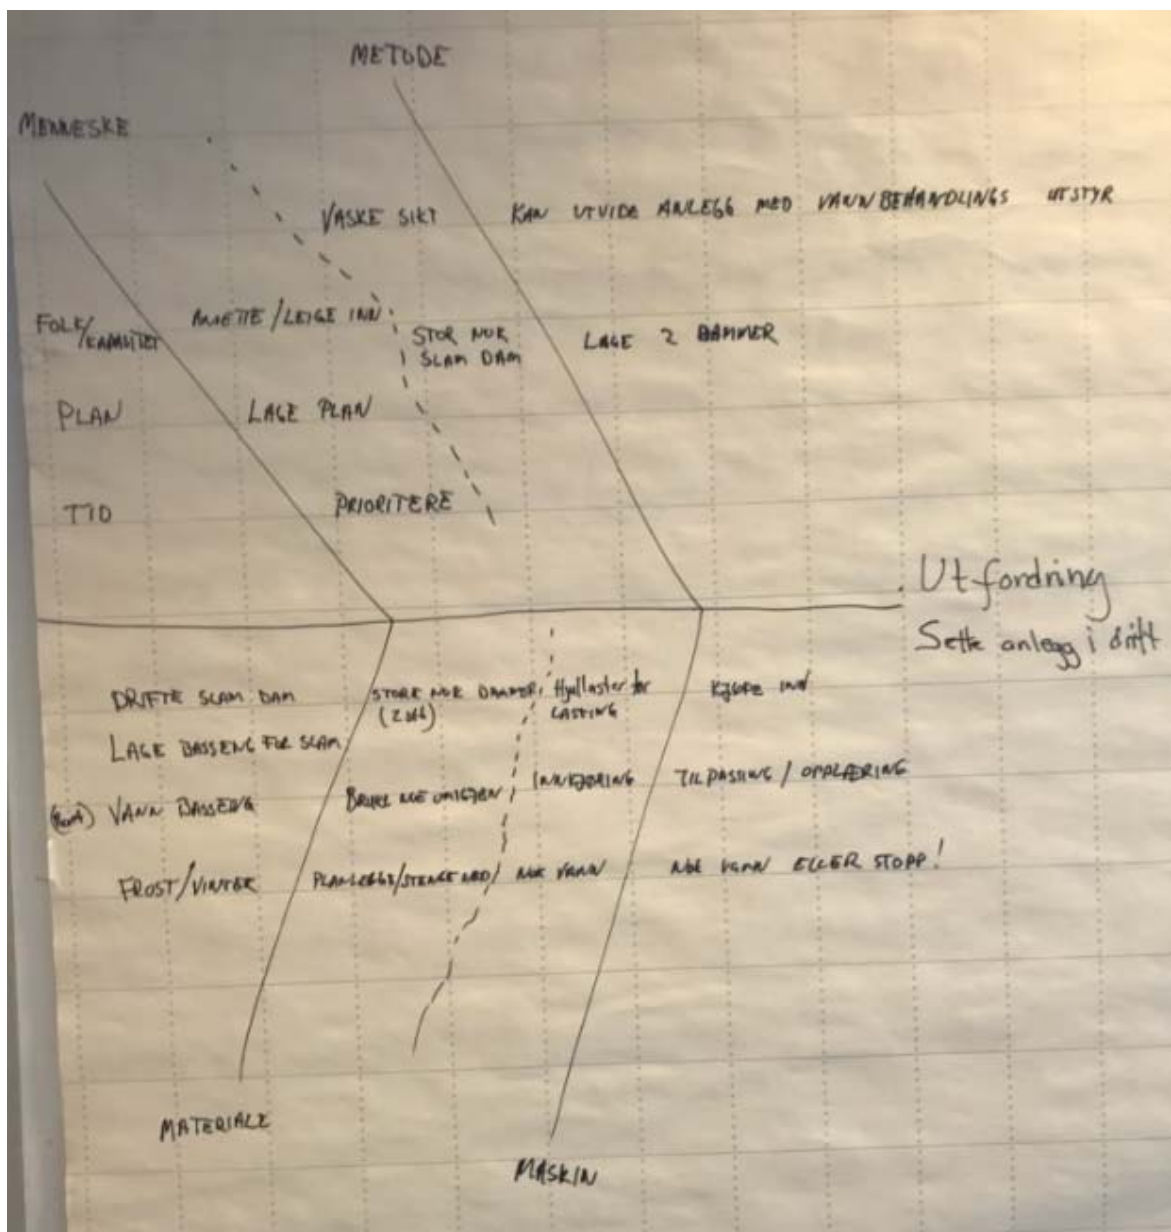 METODE
MENNESKE
VASKE SIKT KAN UTVIDE ANLEGG MED VANNBEHANDLINGS UTSTYR
FOLK/
KAPASITET
ANSETTE/LEIGE INN
STOR NOK
SLAM DAM
LAGE 2 DAMMER
PLAN LAGE PLAN
TID PRIORITERE
Utfordring
Sette anlegg i drift
DRIFTE SLAM DAM
STORE NOK DAMMER
Hjullaster for
LASTING
KJØPE INN
LAGE BASSENG FOR SLAM
VANN BASSENG
BRUKE OMIGJEN
INNKJØRING TILPASSING / OPPLÆRING
FROST/VINTER PLANLEGGE/STENGE NED/ NOK VANN NOK VANN ELLER STOPP!
MATERIALE
MASKIN